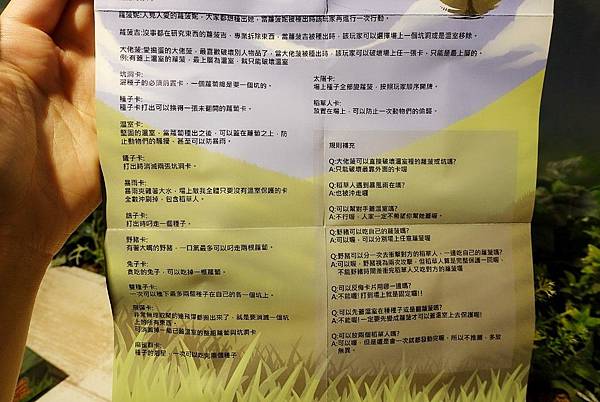 蘿菠妮:人見人愛的蘿菠妮，大家都想種出她，當蘿菠妮被種出時該玩家再進行一次行動。
蘿菠吉:沒事都在研究東西的蘿菠吉，專業拆除東西，當蘿菠吉被種出時，該玩家可以選擇場上一個坑洞或是溫室移除。
大佬菠:愛搗蛋的大佬菠，最喜歡破壞別人物品了，當大佬菠被種出時，該玩家可以破壞場上任一張卡，只能是最上層的。
例:有蓋上溫室的蘿菠，最上層為溫室，就只能破壞溫室
坑洞卡:
種子卡的必須前置卡，一個蘿蔔總是要一個坑的。
種子卡:
種子卡打出可以換得一張未翻開的蘿蔔卡
溫室卡:
堅固的溫室，當蘿蔔種出之後，可以蓋在蘿蔔之上，防
止動物們的騷擾，甚至可以防暴雨。
鏟子卡:
打出時消滅兩張坑洞卡。
暴雨卡:
暴雨夾雜著大水，場上散我全錯只要沒有溫室保護的卡
全數沖刷掉，包含稻草人。
鴿子卡:
打出時叼走一個種子。
野豬卡:
有著大嘴的野豬，一口氣最多可以叼走兩根蘿蔔。
兔子卡:
貪吃的兔子，可以吃掉一根蘿蔔。
雙種子卡:
一次可以種下最多兩個種子在自己的各一個坑上。
飛彈卡:
非常無聊設關的連飛彈都搬出來了，就是要消滅一個坑
上的所有東西。
可消滅掉一組已蓋溫室的整組蘿蔔與坑洞卡
麻雀群卡:
種子的剋星，一次可以吃光兩個種子
太陽卡:
場上種子全部變蘿菠，按照玩家順序開牌。
稻草人卡:
放置在場上，可以防止一次動物們的偷襲。
規則補充
Q:大佬菠可以直接破壞溫室裡的蘿菠或坑嗎?
A:只能破壞最靠外面的卡喔
Q:稻草人遇到暴風雨在嗎?
A:也被沖走囉
Q:可以幫對手蓋溫室嗎?
A:不行喔，人家一定不希望你幫她蓋喔。
Q:野豬可以吃自己的蘿菠嗎?
A:可以喔，可以分別場上任意蘿菠喔
Q:野豬可以分一次去衝幫對方的稻草人，一邊吃自己的蘿菠嗎?
A:可以喔，野豬視為兩次攻擊，但稻草人算是完整保護一回喔，
不能野豬時間差衝完稻草人又吃對方的蘿菠喔
Q:可以反悔卡片用哪一邊嗎?
A:不能喔!打到場上就是固定囉!!
Q:可以先蓋溫室在種種子或是翻蘿菠嗎?
A:不能喔!一定要先變成蘿菠才可以蓋溫室上去保護喔!
Q:可以放兩個稻草人嗎?
A:可以喔，但是還是會一次就都發動完喔，所以不推薦，多放
無異。